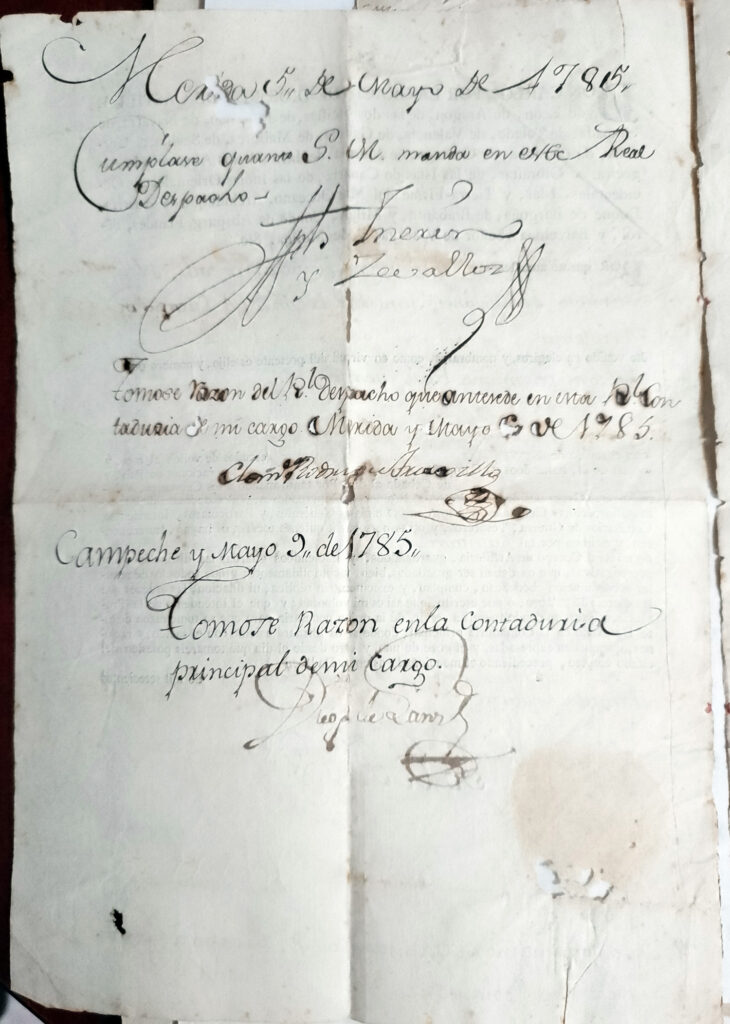 Merida 5,, de Mayo de 1785,,
Cumplase quanto S. M. manda en este Real
Despacho
Jph Merino
y Zevallos
Tomose razon del Rl. Despacho que antecede en esta Rl. Con
taduria de mi cargo Merida y Mayo 5 de 1785.
Clemte Rodriguez
Campeche y Mayo 9,, de 1785,,
Tomose Razon en la Contaduria
principal de mi Cargo.
Diego de